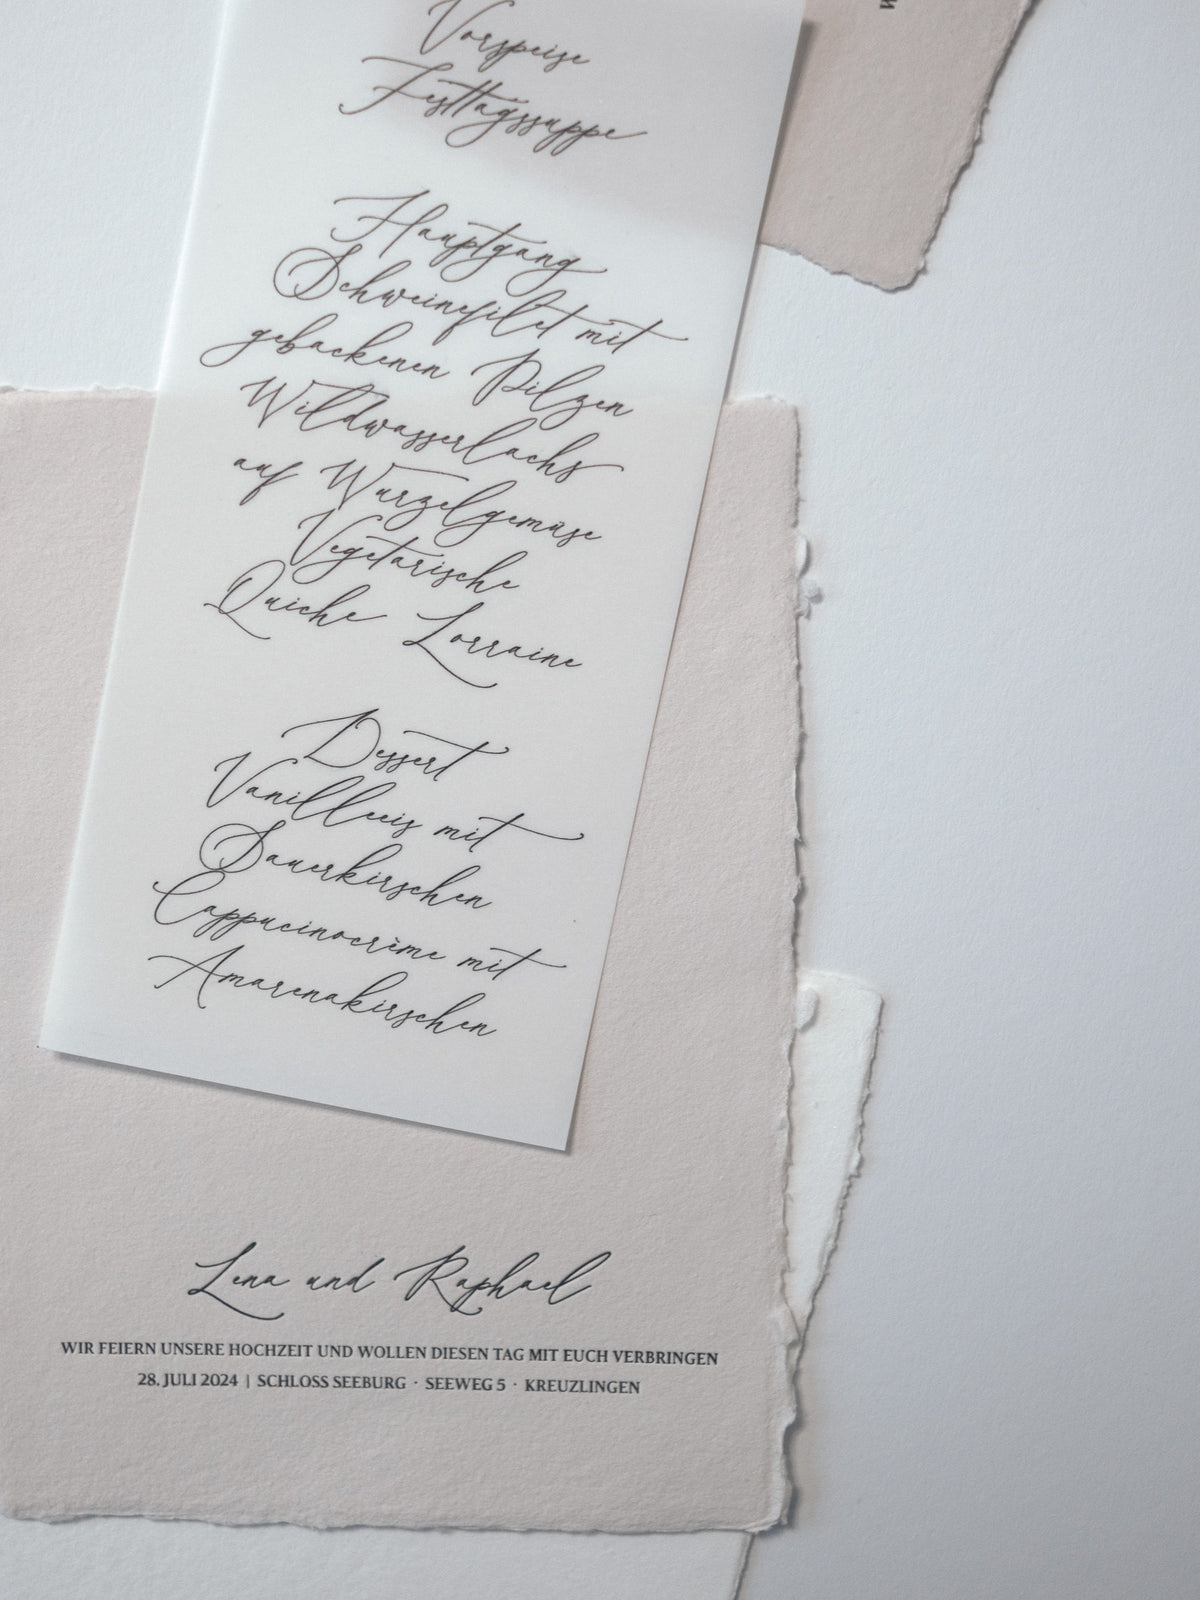 Vorspeise
Festtagssuppe
Hauptgang
Schweinefilet mit
gebackenen Pilzen
Wildwasserlachs
auf Wurzelgemüse
Vegetarische
Quiche Lorraine
Dessert
Vanilleeis mit
Sauerkirschen
Cappucinocrème mit
Amarenakirschen
Lena und Raphael
WIR FEIERN UNSERE HOCHZEIT UND WOLLEN DIESEN TAG MIT EUCH VERBRINGEN
28. JULI 2024 | SCHLOSS SEEBURG · SEEWEG 5 · KREUZLINGEN